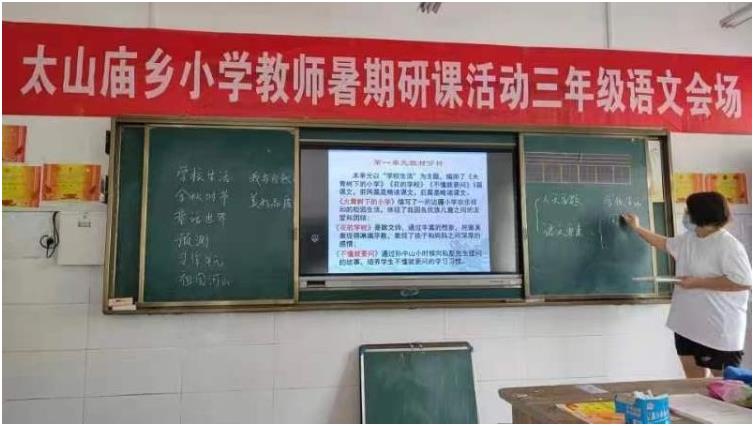 太山庙乡小学教师暑期研课活动三年级语文会场
学校生活 我与自然
金秋时节 美好品质
童话世界
预测
习作单元
祖国河山
第一单元教材分析
本单元以“学校生活”为主题，编排了《大
青树下的小学》《花的学校》《不懂就要问》3篇
课文，前两篇是精读课文，后篇是略读课文。
《大青树下的小学》描写了一所边疆小学欢乐祥
和的校园生活，体现了我国各民族儿童之间的友
爱和团结；
《花的学校》是散文诗，通过丰富的想象，把童真
表现得淋漓尽致，表现了孩子和妈妈之间深厚的
感情；
《不懂就要问》通过孙中山小时候向私塾先生提问
的故事，培养学生不懂就要问的学习习惯。
人文主题
语文要素